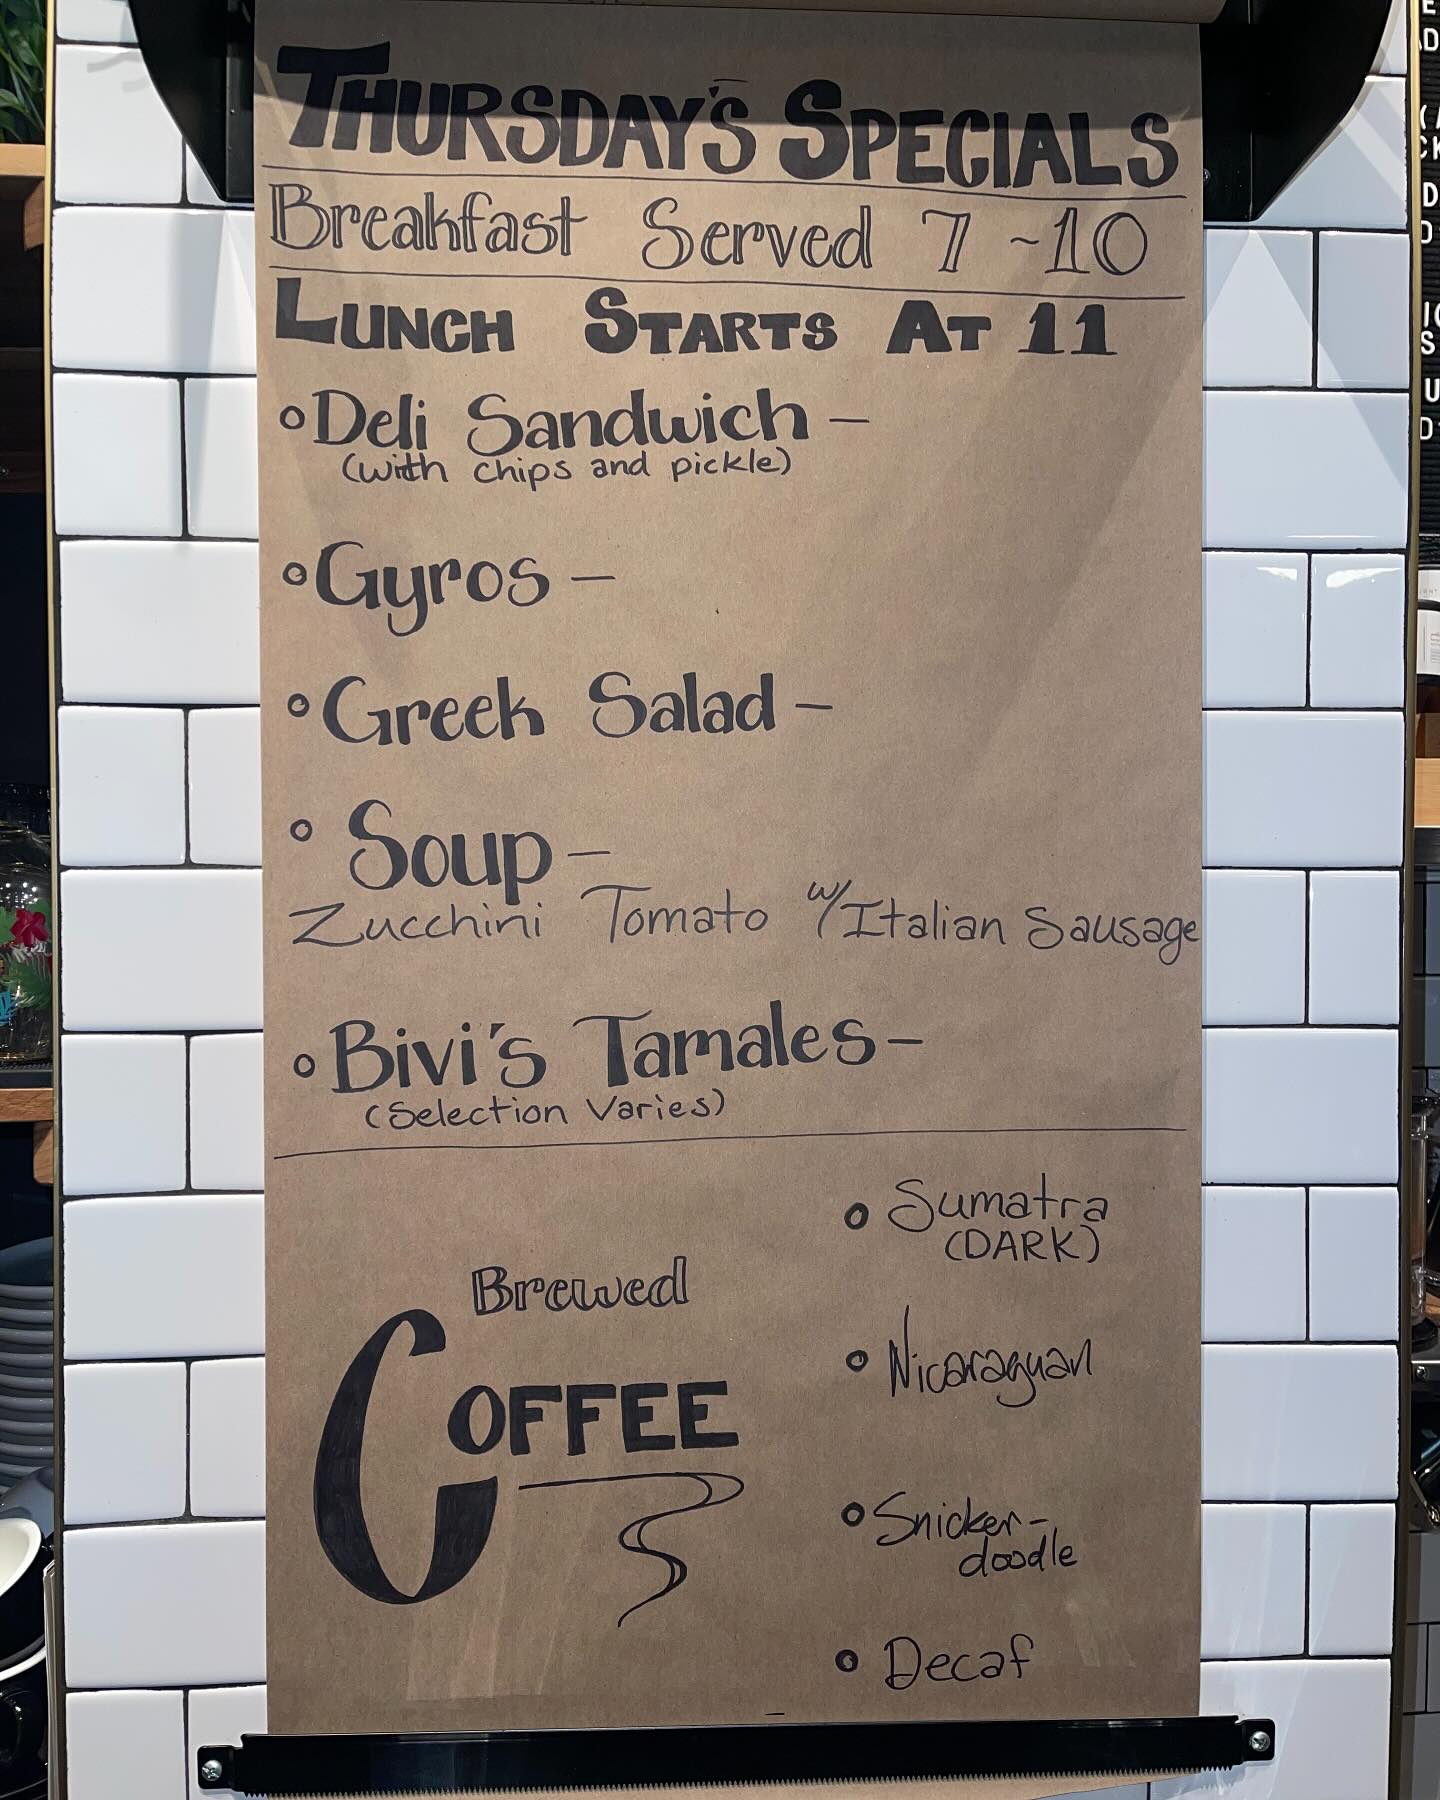 THURSDAY'S SPECIALS
Breakfast Served 7 ~10
LUNCH STARTS AT 11
Deli Sandwich –
(with chips and pickle)
Gyros –
Greek Salad –
Soup –
Zucchini Tomato w/Italian Sausage
Bivi's Tamales –
(Selection Varies)
Brewed
COFFEE
Sumatra
(DARK)
Nicaraguan
Snicker-
doodle
Decaf